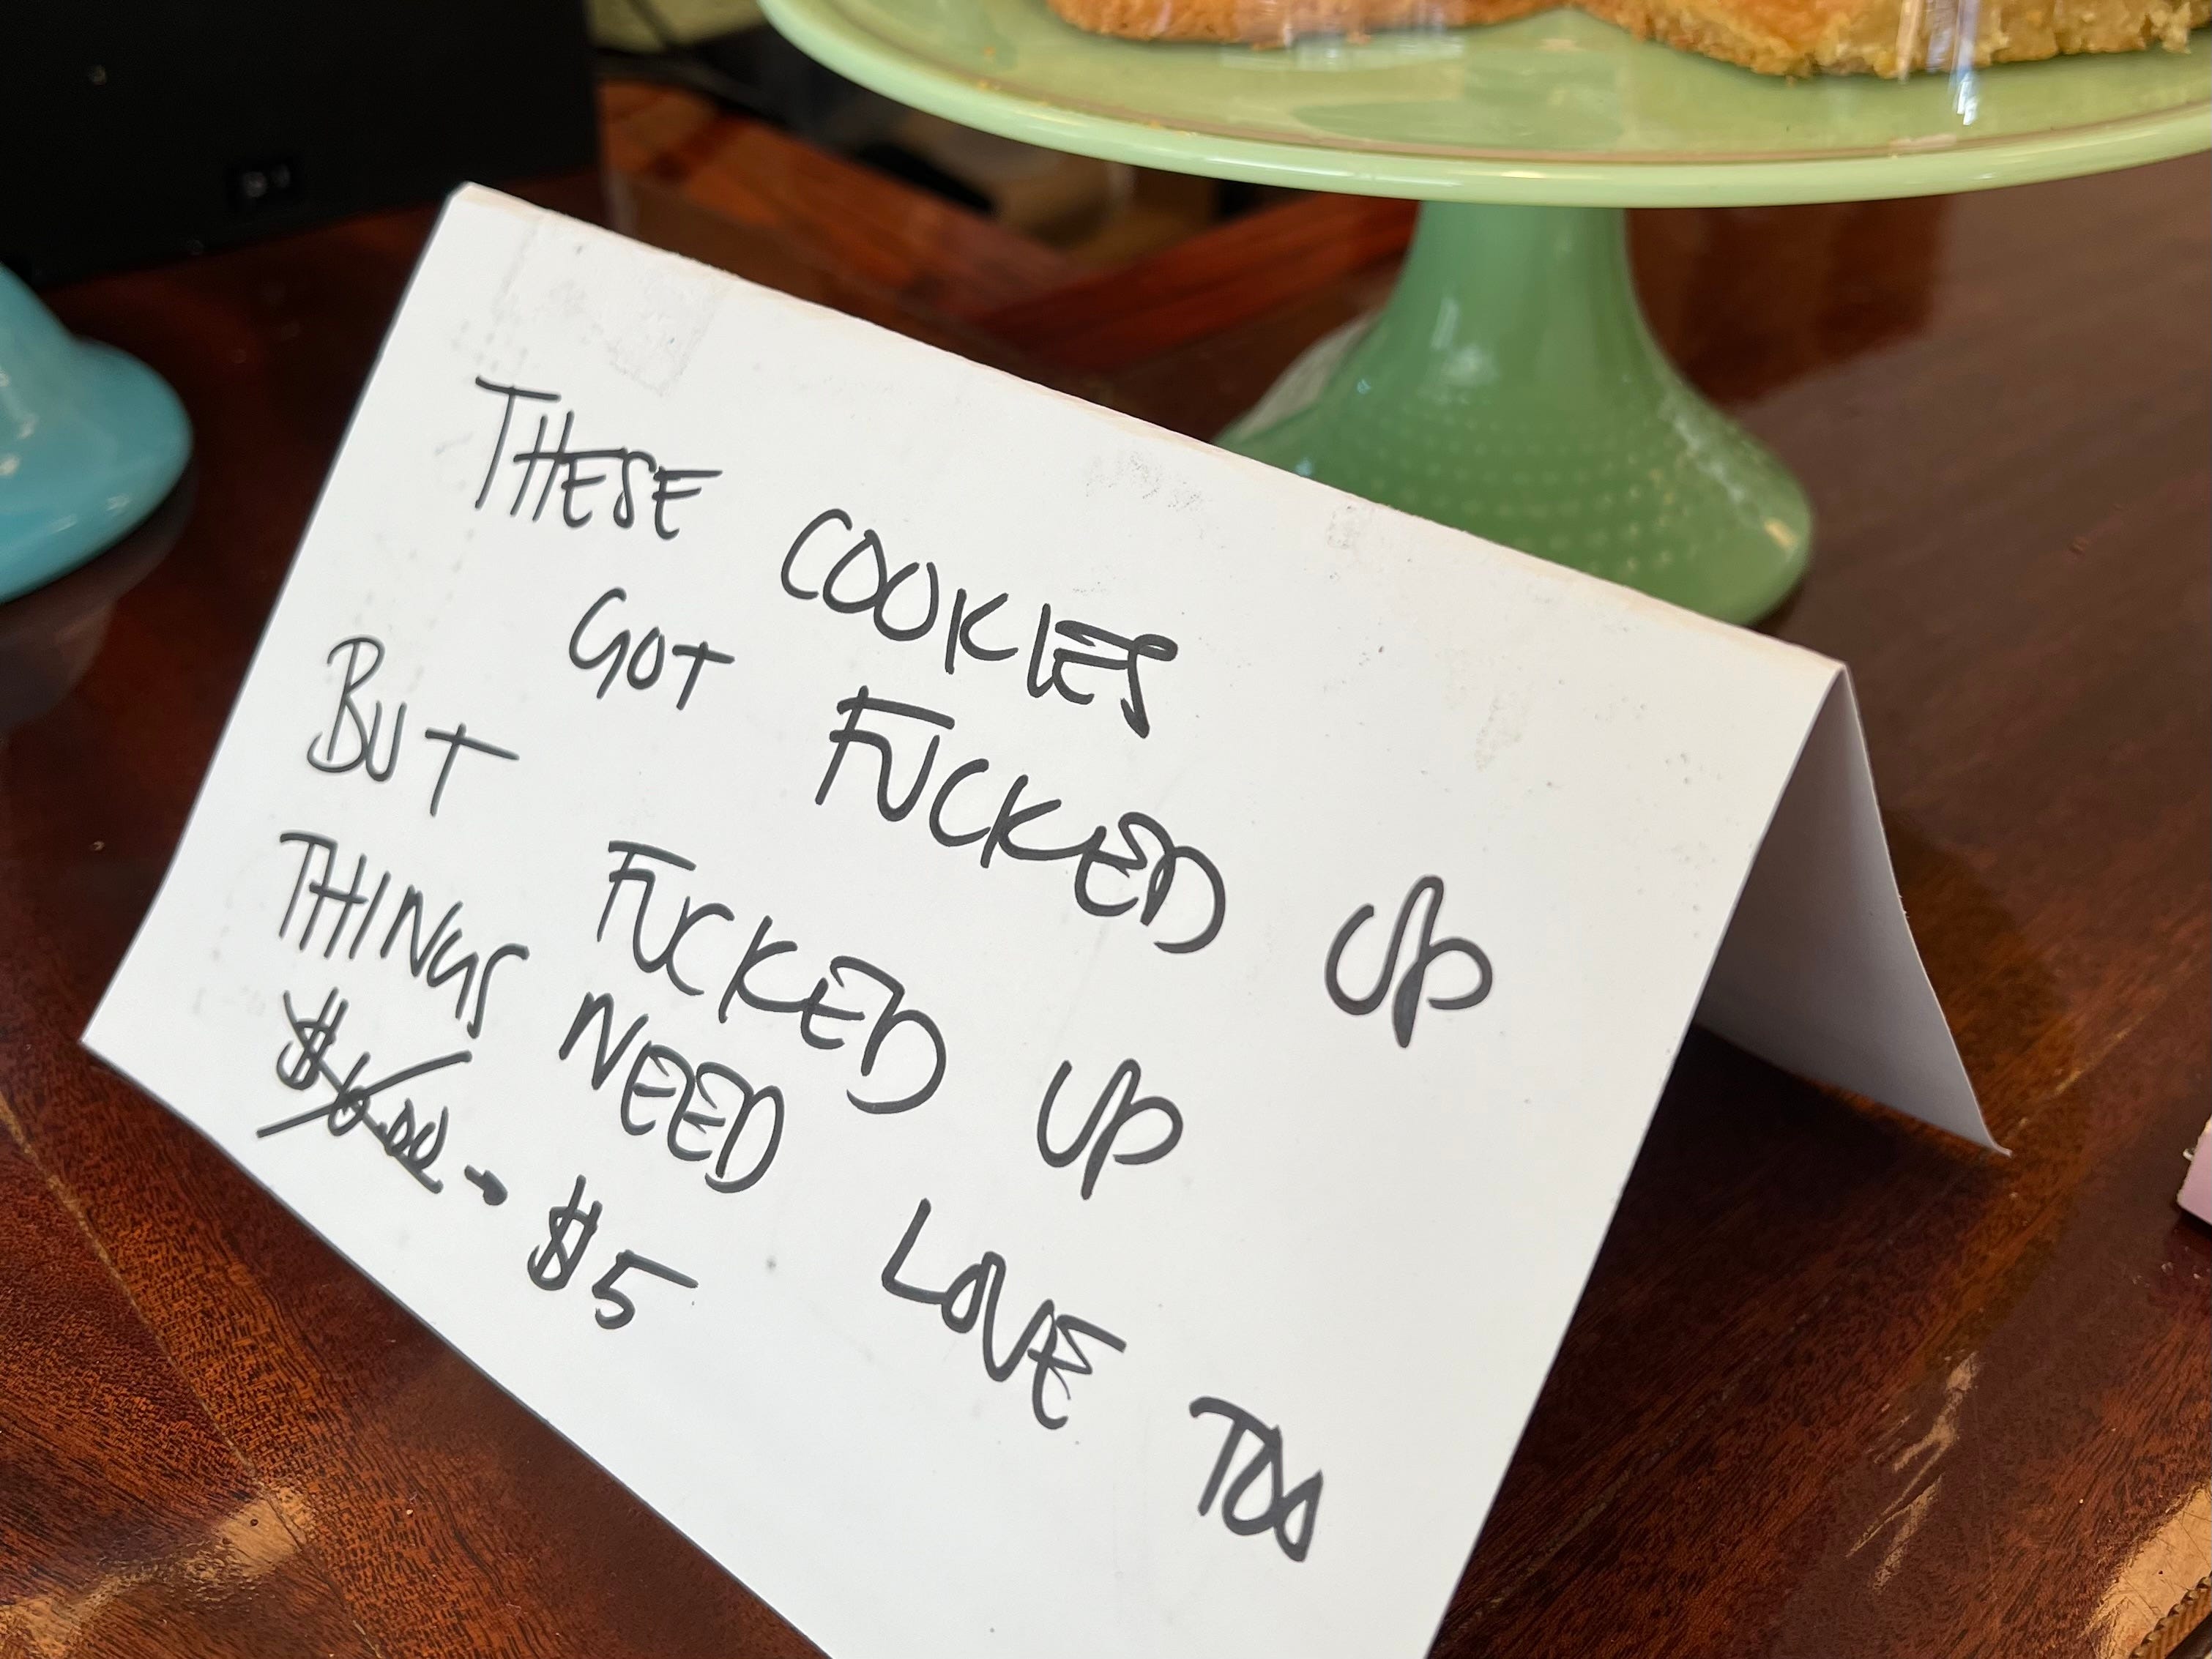 THESE COOKIES
GOT FUCKED UP
BUT FUCKED UP
THINGS NEED LOVE TOO
$6.00 → $5